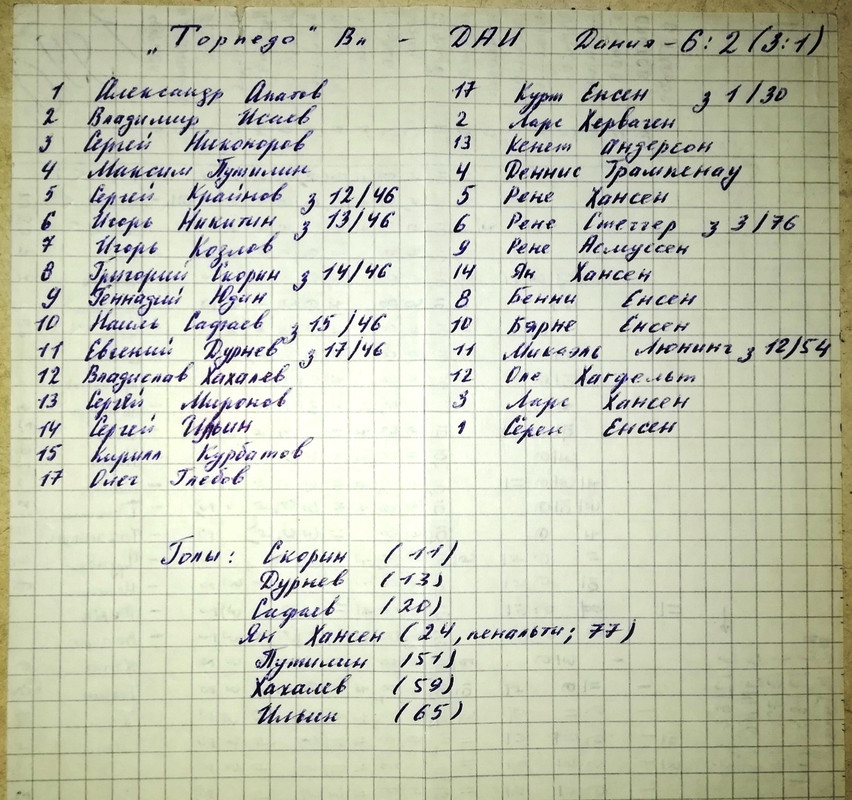 „Торпедо" Вл - ДАИ Дания - 6:2 (3:1)
1 Александр Апатов 17 Курт Енсен з 1/30
2 Владимир Исаев 2 Ларс Херваген
3 Сергей Никоноров 13 Кенет Андерсон
4 Максим Путилин 4 Деннис Трампенау
5 Сергей Крайнов з 12/46 5 Рене Хансен
6 Игорь Никитин з 13/46 6 Рене Стеггер з 3/76
7 Игорь Козлов 9 Рене Асмуссен
8 Григорий Скорин з 14/46 14 Ян Хансен
9 Геннадий Юдин 8 Бенни Енсен
10 Наиль Сафаев з 15/46 10 Бярне Енсен
11 Евгений Дурнев з 17/46 11 Микаэль Люнинг з 12/54
12 Владислав Хахалев 12 Оле Хагфельт
13 Сергей Миронов 3 Ларс Хансен
14 Сергей Ильин 1 Сёрен Енсен
15 Кирилл Курбатов
17 Олег Глебов
Голы: Скорин (11)
Дурнев (13)
Сафаев (20)
Ян Хансен (24, пенальти; 77)
Путилин (51)
Хахалев (59)
Ильин (65)